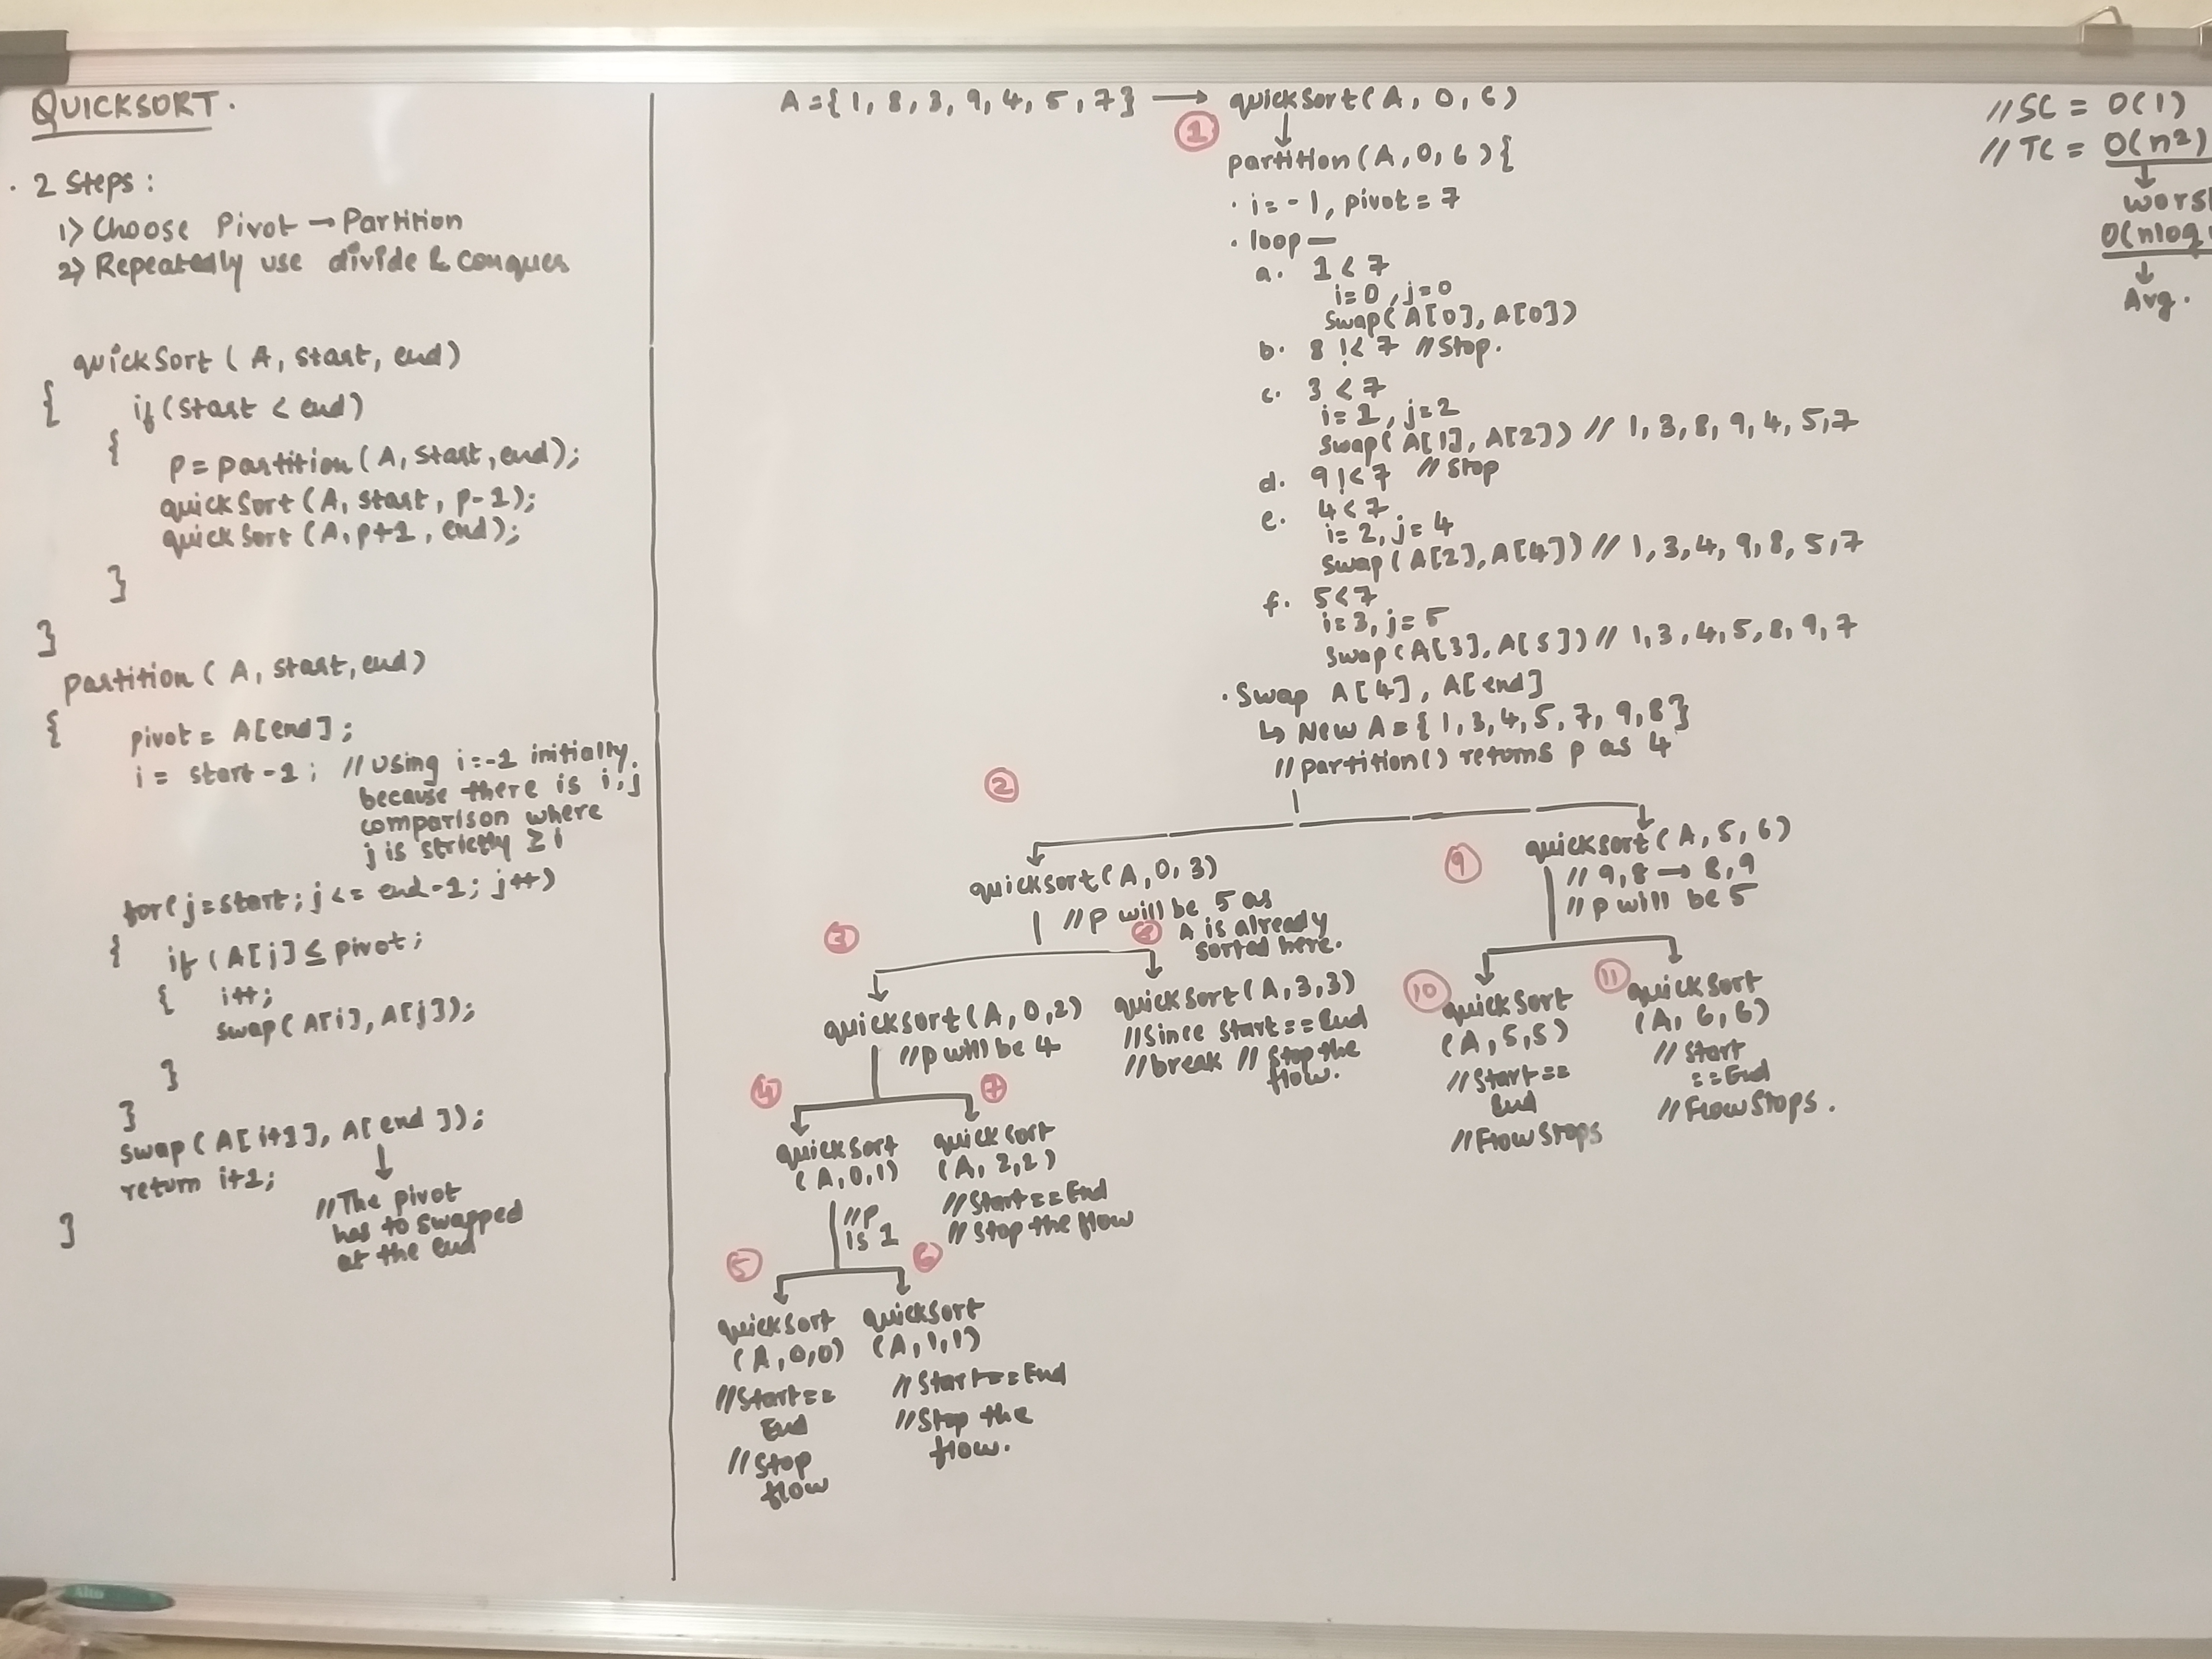 QUICKSORT.
. 2 Steps :
1) Choose Pivot → Partition
2) Repeatedly use divide & conques
quickSort ( A, start, end)
{ if (start < end)
{ p = partition ( A, start, end);
quickSort (A, start, p-1);
quickSort (A, p+1, end);
}
}
partition ( A, start, end)
{ pivot = A[end];
i = start -1; // Using i=-1 initially.
because there is i,j
comparison where
j is strictly ≥ i
for( j=start; j <= end-1; j++)
{ if (A[j] ≤ pivot;
{ i++;
swap( A[i], A[j]);
}
}
swap ( A[ i+1], A[ end ]);
↓
return i+1;
// The pivot
has to swapped
at the end
}
A = { 1, 8, 3, 9, 4, 5, 7 } → quickSort( A, 0, 6)
① ↓
partition ( A, 0, 6 ) {
· i = -1, pivot = 7
· loop —
a. 1 < 7
i=0, j=0
Swap( A[0], A[0])
b. 8 !< 7 // Stop.
c. 3 < 7
i= 1, j=2
Swap( A[1], A[2]) // 1, 3, 8, 9, 4, 5, 7
d. 9 !< 7 // Stop
e. 4 < 7
i= 2, j= 4
Swap ( A[2], A[4]) // 1, 3, 4, 9, 8, 5, 7
f. 5 < 7
i=3, j= 5
Swap (A[3], A[5]) // 1, 3, 4, 5, 8, 9, 7
· Swap A[4], A[end]
↳ New A = { 1, 3, 4, 5, 7, 9, 8 }
// partition() returns p as 4
②
quicksort( A, 0, 3)
// P will be 5 as
A is already
sorted here.
③
quicksort( A, 0, 2)
// p will be 4
⑧
quickSort ( A, 3, 3)
// Since Start == End
// break // Stop the
flow.
④
quickSort
( A, 0, 1)
// P
is 1
⑦
quicksort
(A, 2, 2)
// Start == End
// Stop the flow
⑤
quicksort
( A, 0, 0)
// Start ==
End
// Stop
flow
⑥
quickSort
( A, 1, 1)
// Start == End
// Stop the
flow.
⑨
quicksort( A, 5, 6)
// 9, 8 → 8, 9
// p will be 5
⑩
quickSort
( A, 5, 5)
// Start ==
End
// Flow Stops
⑪
quickSort
( A, 6, 6)
// Start
== End
// Flow Stops .
// SC = O(1)
// TC = O(n2)
↓
O(nlog
↓
Avg.
Alto